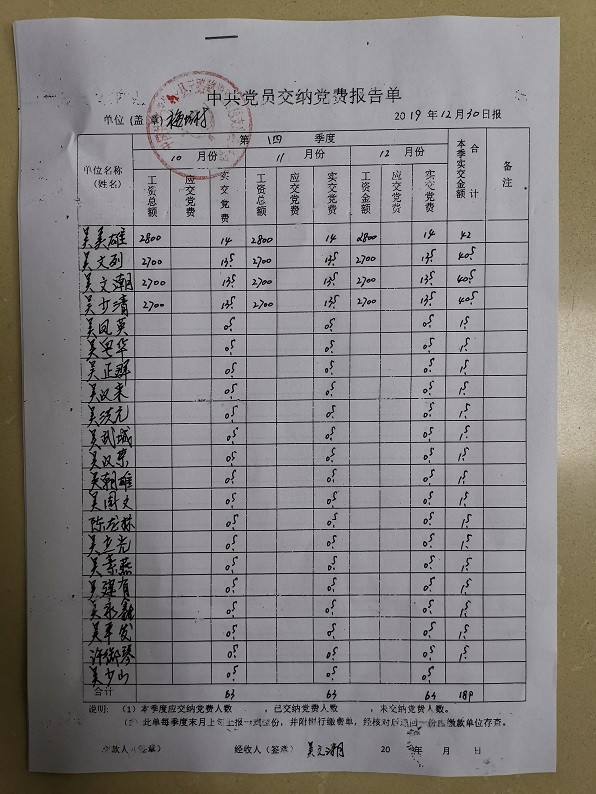 中共党员交纳党费报告单
单位(盖章) 2019年12月30日报
单位名称(姓名) 第 四 季度 本季实交金额 合计 备注
10 月份 11 月份 12 月份
工资总额 应交党费 实交党费 工资总额 应交党费 实交党费 工资金额 应交党费 实交党费
吴美雄 2800 14 2800 14 2800 14 42
吴文列 2700 13.5 2700 13.5 2700 13.5 40.5
吴文潮 2700 13.5 2700 13.5 2700 13.5 40.5
吴少清 2700 13.5 2700 13.5 2700 13.5 40.5
吴凤英 0.5 0.5 0.5 1.5
吴粤华 0.5 0.5 0.5 1.5
吴正辉 0.5 0.5 0.5 1.5
吴汉来 0.5 0.5 0.5 1.5
吴洪元 0.5 0.5 0.5 1.5
吴武城 0.5 0.5 0.5 1.5
吴汉荣 0.5 0.5 0.5 1.5
吴朝雄 0.5 0.5 0.5 1.5
吴国文 0.5 0.5 0.5 1.5
陈龙林 0.5 0.5 0.5 1.5
吴立光 0.5 0.5 0.5 1.5
吴燕 0.5 0.5 0.5 1.5
吴建有 0.5 0.5 0.5 1.5
吴永 0.5 0.5 0.5 1.5
吴平俊 0.5 0.5 0.5 1.5
许琴 0.5 0.5 0.5 1.5
吴少山 0.5 0.5 0.5
合计 63 63 63 189
说明:(1)本季度应交纳党费人数 ,已交纳党费人数 ,未交纳党费人数。
(2)此单每季度末月上旬上报一式两份,并附银行缴费单,经核对后退回一份由缴款单位存查。
交款人(签章) 经收人(签章) 吴文潮 20 年 月 日